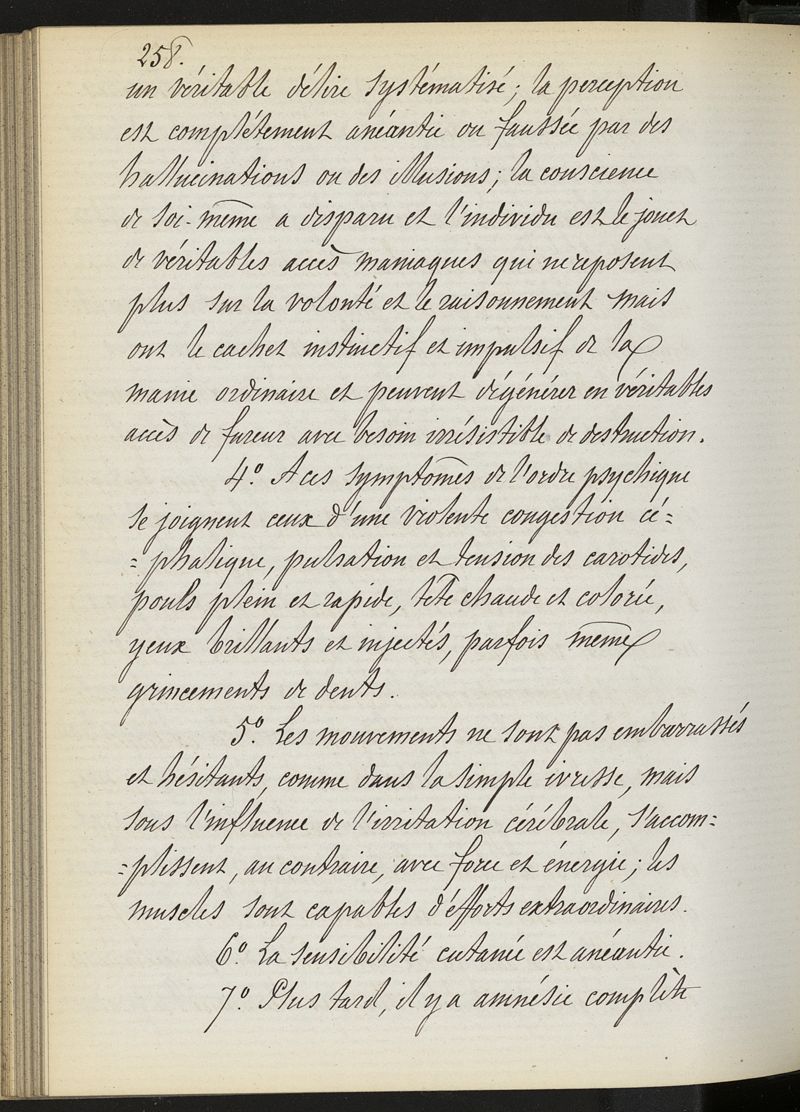 258.
un véritable délire systématisé; la perception
est complétement anéantie ou faussée par des
hallucinations ou des illusions; la conscience
de soi-même a disparu et l'individu est le jouet
de véritables accès maniaques qui ne reposent
plus sur la volonté et le raisonnement mais
ont le cachet instinctif et impulsif de la
manie ordinaire et peuvent dégénérer en véritables
accès de fureur avec besoin irrésistible de destruction.
4.º A ces symptômes de l'ordre psychique
se joignent ceux d'une violente congestion cé=
=phalique, pulsation et tension des carotides,
pouls plein et rapide, tête chaude et colorée,
yeux brillants et injectés, parfois même
grincements de dents.
5.º Les mouvements ne sont pas embarrassés
et hésitants, comme dans la simple ivresse, mais
sous l'influence de l'irritation cérébrale, s'accom=
=plissent, au contraire, avec force et énergie; les
muscles sont capables d'éfforts extraordinaires.
6.º La sensibilité cutanée est anéantie.
7.º Plus tard, il y a amnésie complète